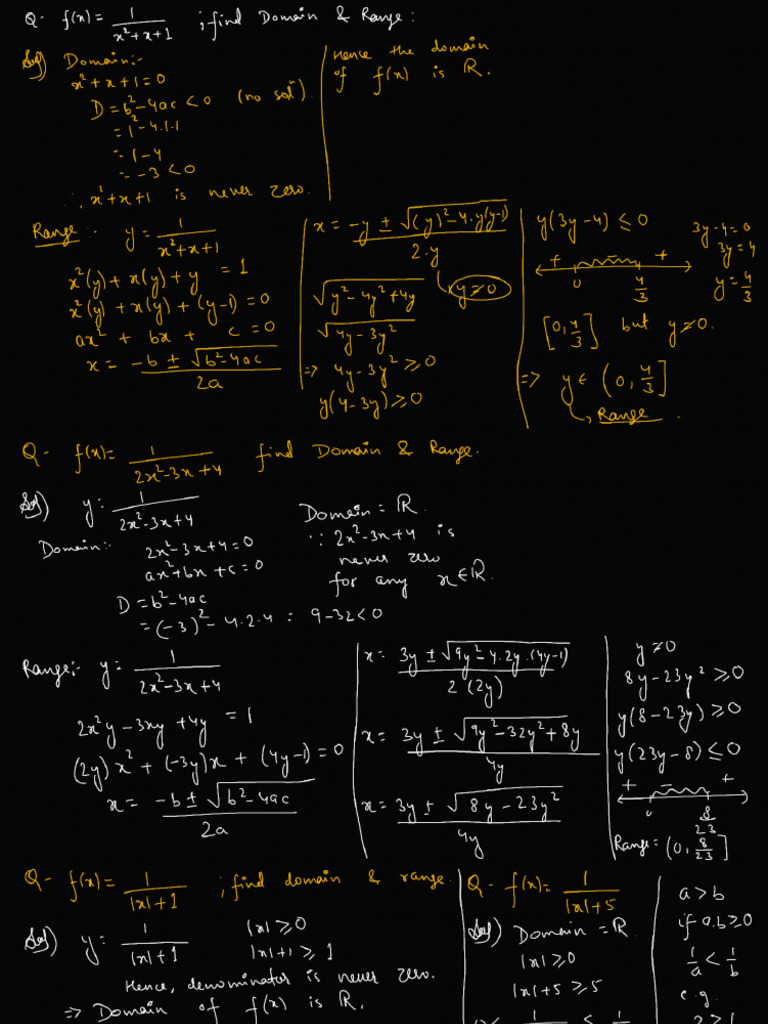 Q- f(x) = 1/(x²+x+1) ; find Domain & Range:
Sol) Domain:-
x²+x+1=0
D = b²-4ac < 0 (no solⁿ)
= 1²-4.1.1
= 1-4
= -3 < 0
∴ x²+x+1 is never zero.
Hence the domain
of f(x) is ℝ.
Range:- y = 1/(x²+x+1)
x²(y) + x(y) + y = 1
x²(y) + x(y) + (y-1) = 0
ax² + bx + c = 0
x = (-b ± √(b²-4ac))/2a
x = (-y ± √((y)²-4.y(y-1)))/2.y
y≠0
√(y²-4y²+4y)
√(4y-3y²)
=> 4y-3y² ≥ 0
y(4-3y) ≥ 0
y(3y-4) ≤ 0
3y-4=0
3y=4
y=4/3
+ - +
0 4/3
[0, 4/3] but y≠0.
=> y ∈ (0, 4/3]
↳ Range.
Q- f(x) = 1/(2x²-3x+4) find Domain & Range.
Sol) y = 1/(2x²-3x+4)
Domain:- 2x²-3x+4=0
ax²+bx+c=0
D = b²-4ac
= (-3)²-4.2.4 = 9-32<0
Domain = ℝ.
∵ 2x²-3x+4 is
never zero
for any x∈ℝ.
Range:- y = 1/(2x²-3x+4)
2x²y - 3xy + 4y = 1
(2y)x² + (-3y)x + (4y-1) = 0
x = (-b ± √(b²-4ac))/2a
x = (3y ± √(9y²-4.2y.(4y-1)))/2(2y)
x = (3y ± √(9y²-32y²+8y))/4y
x = (3y ± √(8y-23y²))/4y
y≠0
8y-23y² ≥ 0
y(8-23y) ≥ 0
y(23y-8) ≤ 0
+ - +
0 8/23
Range = (0, 8/23]
Q- f(x) = 1/(|x|+1) ; find domain & range.
Sol) y = 1/(|x|+1)
|x| ≥ 0
|x|+1 ≥ 1
Hence, denominator is never zero.
=> Domain of f(x) is ℝ.
Q- f(x) = 1/(|x|+5)
Sol) Domain = ℝ.
|x| ≥ 0
|x|+5 ≥ 5
a>b
if a.b≥0
1/a < 1/b
e.g.
2>1